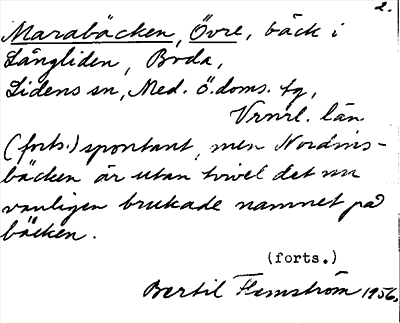 2.
Marabäcken, Övre, bäck i
Långliden, Boda,
Lidens sn, Med. ö. doms. tg,
Vrnrl. län
(forts.) spontant, men Nordins-
bäcken är utan tvivel det nu
vanligen brukade namnet på
bäcken.
(forts.)
Bertil Flemström 1956.